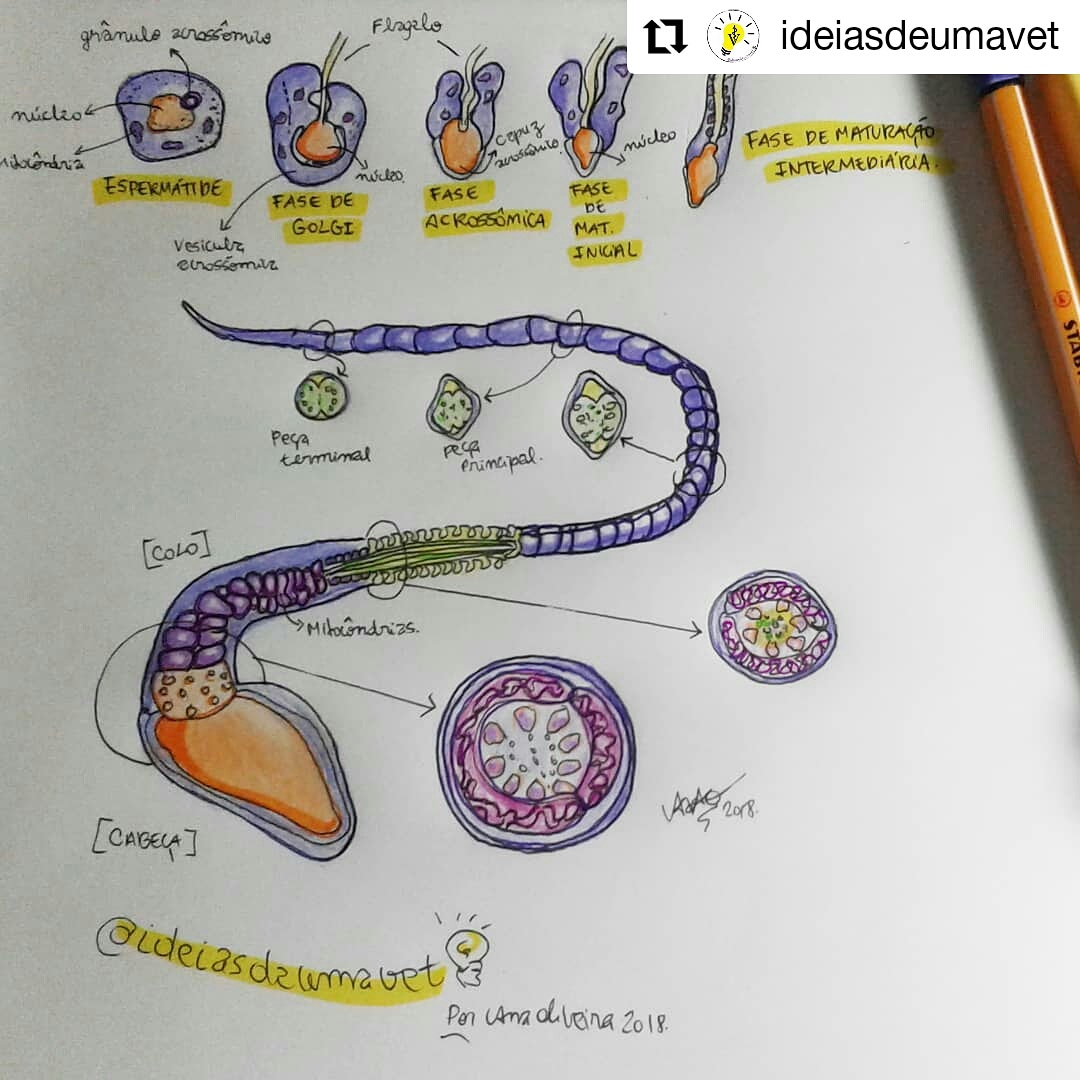 ideiasdeumavet
grânulo acrossômico
Flagelo
núcleo
Mitocôndria
ESPERMÁTIDE
FASE DE
GOLGI
núcleo.
Vesicula
acrossômica
FASE
ACROSSÔMICA
capuz
acrossômico.
FASE
DE
MAT.
INICIAL
núcleo
FASE DE MATURAÇÃO
INTERMEDIÁRIA.
STAB
Peça
terminal
Peça
Principal.
[COLO]
Mitocôndrias.
[CABEÇA]
2018.
@ideiasdeumavet
Por Ana Oliveira 2018.